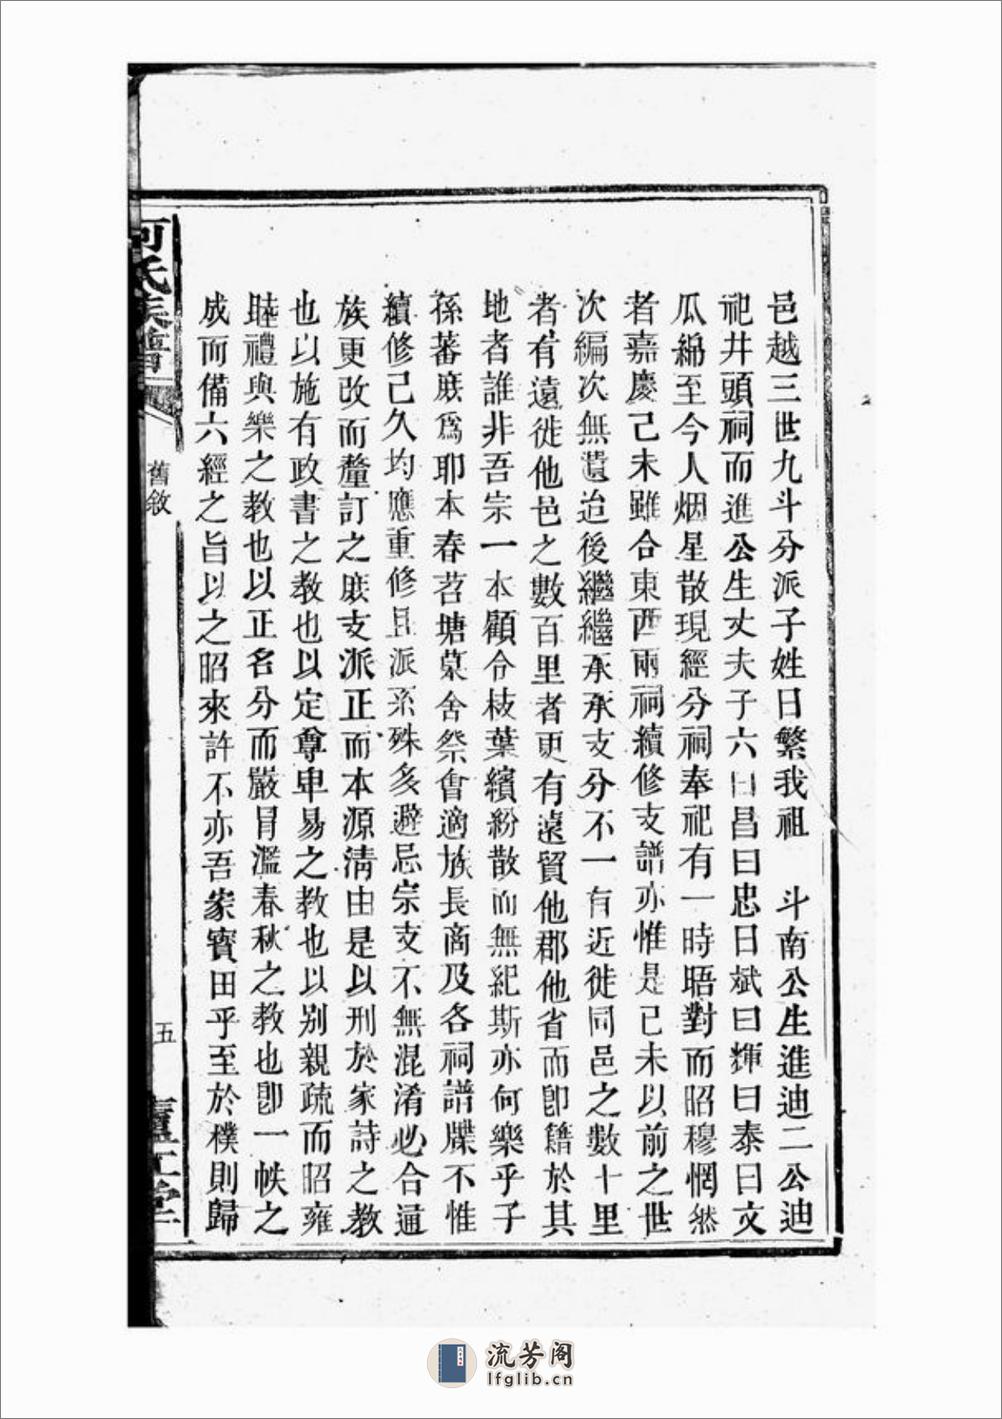 邑越三世九斗分派子姓日繁我祖　斗南公生進迪二公迪
祀井頭祠而進公生丈夫子六曰昌曰忠曰斌曰輝曰泰曰文
瓜綿至今人烟星散現經分祠奉祀有一時晤對而昭穆惘然
者嘉慶己未雖合東西兩祠續修支譜亦惟是已未以前之世
次編次無遺迨後繼繼承承支分不一有近徙同邑之數十里
者有遠徙他邑之數百里者更有遠貿他郡他省而卽籍於其
地者誰非吾宗一本顧令枝葉繽紛散而無紀斯亦何樂乎子
孫蕃庶爲耶本春苕塘墓舍祭會適族長商及各祠譜牒不惟
續修已久均應重修且派系殊多避忌宗支不無混淆必合通
族更改而釐訂之庶支派正而本源淸由是以刑於家詩之教
也以施有政書之教也以定尊卑易之教也以别親疏而昭雍
睦禮與樂之教也以正名分而嚴冒濫春秋之教也卽一帙之
成而備六經之旨以之昭來許不亦吾家寶田乎至於樸則歸
何氏族譜
舊敘
五
廬江堂
流芳阁
lfglib.cn